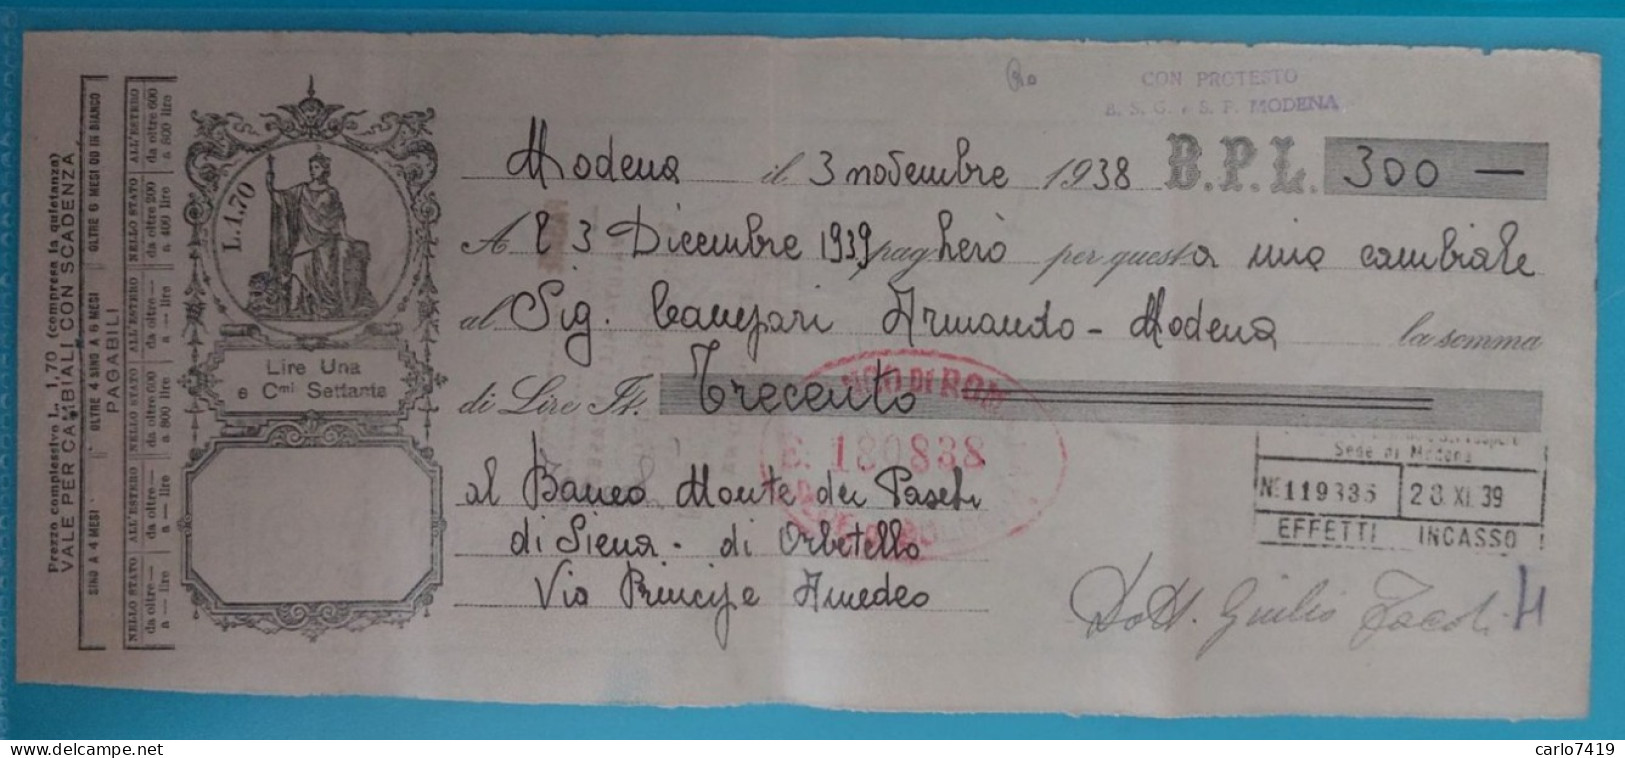 Prezzo complessivo L. 1,70 (compresa la quietanza)
VALE PER CAMBIALI CON SCADENZA
SINO A 4 MESI
OLTRE 4 SINO A 6 MESI
OLTRE 6 MESI OD IN BIANCO
PAGABILI
NELLO STATO
ALL'ESTERO
NELLO STATO
ALL'ESTERO
NELLO STATO
ALL'ESTERO
da oltre —
da oltre —
da oltre 600
da oltre —
da oltre 200
da oltre 600
a — lire
a — lire
a 800 lire
a — lire
a 400 lire
a 800 lire
L. 1.70
Lire Una
e Cmi Settanta
CON PROTESTO
B. S. G. e S. P. MODENA
Modena il 3 novembre 1938 B.P.L. 300 —
A l 3 Dicembre 1939 pagherò per questa mia cambiale
al Sig. Campari Armando - Modena la somma
di Lire It. Trecento
DI ROM
E. 180838
al Banco Monte dei Paschi
di Siena - di Orbetello
Via Principe Amedeo
Sede di Modena
No 119335 28 XI. 39
EFFETTI INCASSO
Dott. Giulio Jacoli
delcampe.net
carlo7419